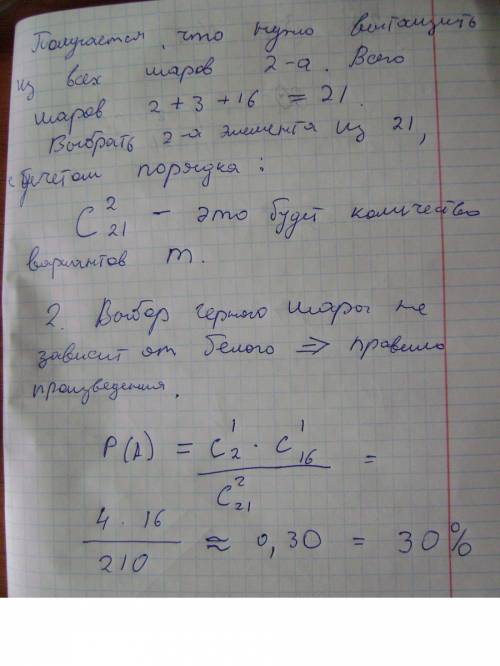 Получается, что нужно вытащить
из всех шаров 2-а. Всего
шаров 2 + 3 + 16 = 21.
Выбрать 2-а элемента из 21,
с учетом порядка:
C²₂₁ – это будет количество
вариантов m.
2. Выбор черного шара не
зависит от белого ⇒ правило
произведения.
P(A) = C¹₂ · C¹₁₆ / C²₂₁ =
4 · 16 / 210 ≈ 0,30 = 30%